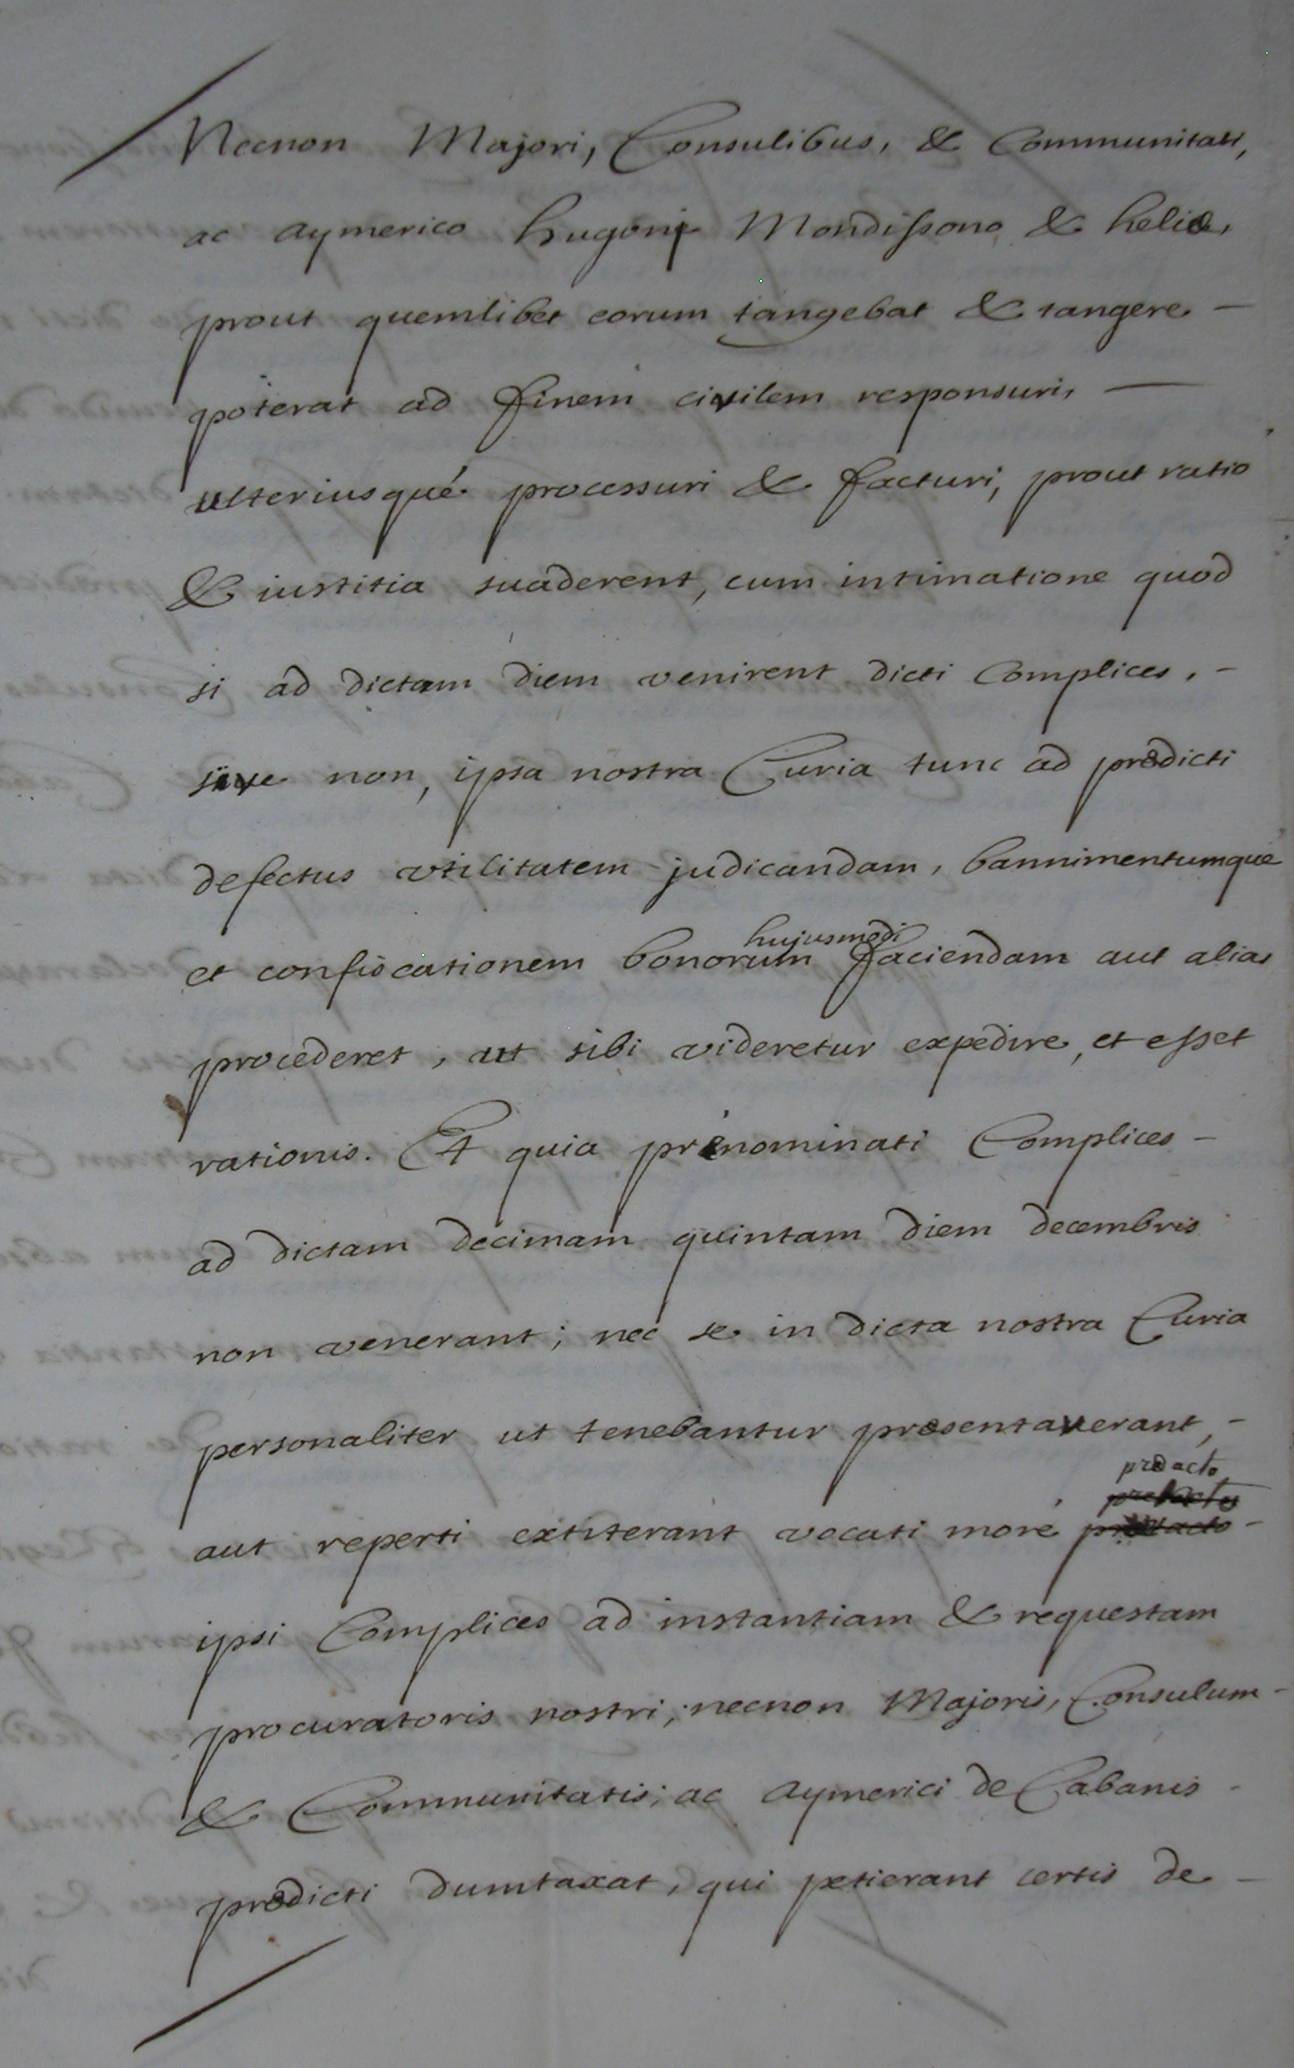 Necnon Majori, Consulibus, & Communitati,
ac aymerico hugoni Mondissono & heliæ,
prout quemlibet eorum tangebat & tangere –
poterat ad finem civilem responsuri, —
ulteriusqué processuri & facturi, prout ratio
& iustitia suaderent, cum intimatione quod
si ad dictam diem venirent dicti Complices, –
sive non, ipsa nostra Curia tunc ad prædicti
defectus vtilitatem judicandam, bannimentumque
hujusmodi
et confiscationem bonorum faciendam aut alias
procederet, ut sibi videretur expedire, et esset
rationis. Et quia prænominati Complices –
ad dictam decimam quintam diem decembris
non venerant; nec se in dicta nostra Curia
personaliter ut tenebantur præsentaverant, –
præacto
aut reperti extiterant vocati moré –
ipsi Complices ad instantiam & requestam
procuratoris nostri, necnon Majoris, Consulum –
& Communitatis; ac aymerici de Cabanis –
prædicti dumtaxat, qui petierant certis de –